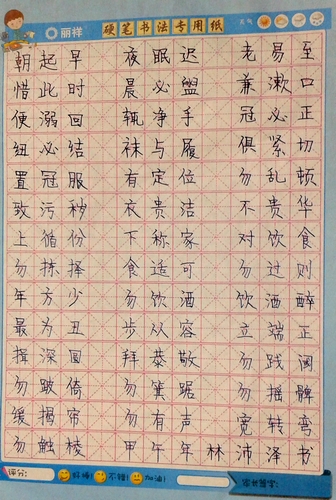 丽祥 硬笔书法专用纸 天气
朝起早 夜眠迟 老易至
惜此时 晨必盥 兼漱口
便溺回 辄净手 冠必正
纽必结 袜与履 俱紧切
置冠服 有定位 勿乱顿
致污秽 衣贵洁 不贵华
上循份 下称家 对饮食
勿拣择 食适可 勿过则
年方少 勿饮酒 饮酒醉
最为丑 步从容 立端正
揖深圆 拜恭敬 勿践阈
勿跛倚 勿箕踞 勿摇髀
缓揭帘 勿有声 宽转弯
勿触棱 甲午年林沛泽书
评分: 好棒! 不错! 加油! 家长签字: